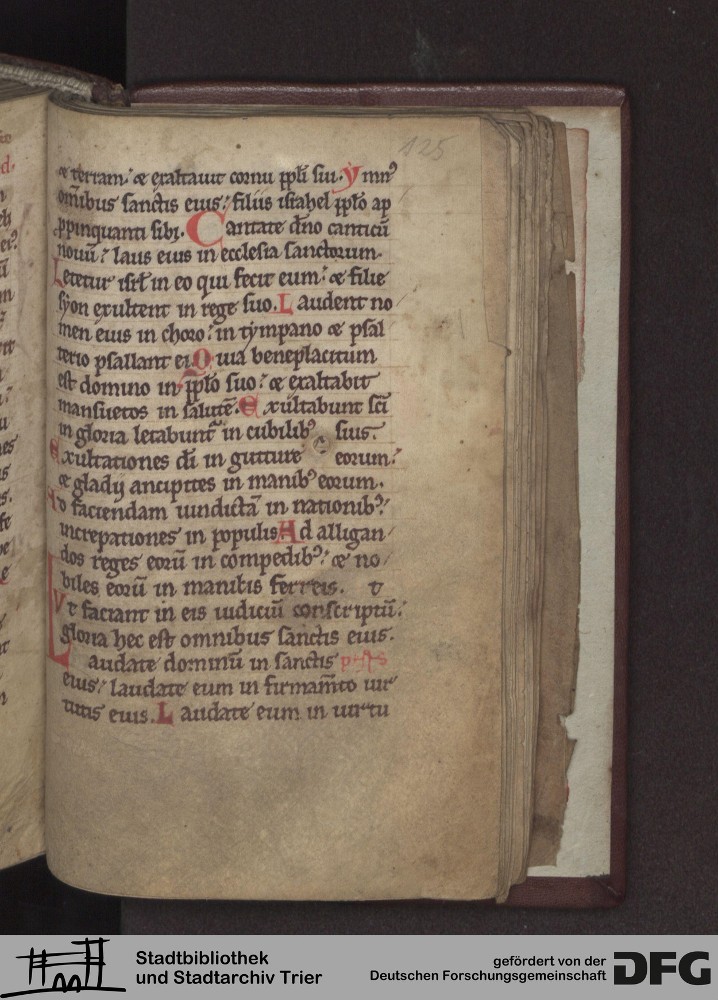 125
& terram. & exaltauit cornu ppli sui. Ymn9
omibus sanctis eius. filiis israhel pplo ap
ppinquanti sibi. Cantate dno canticu
nouu. laus eius in ecclesia sanctorum.
Letetur isrl in eo qui fecit eum. & filie
syon exultent in rege suo. Laudent no
men eius in choro. in tympano & psal
terio psallant ei Quia beneplacitum
est domino in pplo suo. & exaltabit
mansuetos in salute. Exultabunt sci
in gloria letabunt in cubilib9 suis.
Exultationes di in gutture eorum.
& gladij ancipites in manib9 eorum.
Ad faciendam uindicta in nationib9.
increpationes in populis Ad alligan
dos reges eoru in compedib9. & no
biles eoru in manicis ferreis.
Vt faciant in eis iudiciu conscriptu.
gloria hec est omnibus sanctis eius.
Laudate dominu in sanctis
eius. laudate eum in firmamto uir
tutis eius. Laudate eum in uirtu
Stadtbibliothek
und Stadtarchiv Trier
gefördert von der
Deutschen Forschungsgemeinschaft
DFG